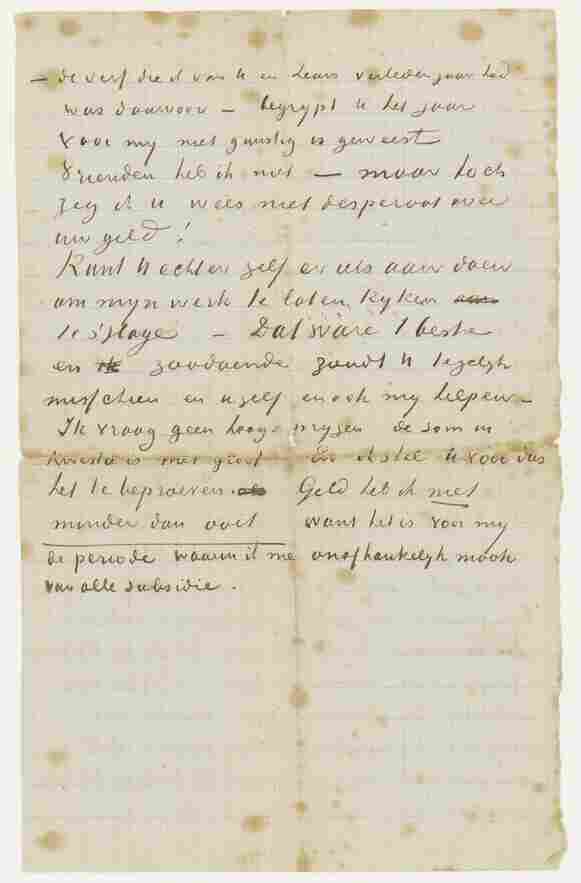 – de verf die ik van U en Leurs verleden jaar had
was daarvoor – begrypt U het jaar
voor my niet gunstig is geweest
Vrienden heb ik niet – maar toch
zeg ik U wees niet desperaat over
uw geld!
Kunt U echter zelf er iets aan doen
om myn werk te laten kyken
te s'Hage – Dat ware 't beste
en zoodoende zoudt U tegelyk
misschien en Uzelf en ook my helpen –
Ik vraag geen hooge pryzen de som in
kwestie is niet groot Dus ik stel U voor dus
het te beproeven. Geld heb ik niet
minder dan ooit want het is voor my
de periode waarin ik me onafhankelyk maak
van alle subsidie.